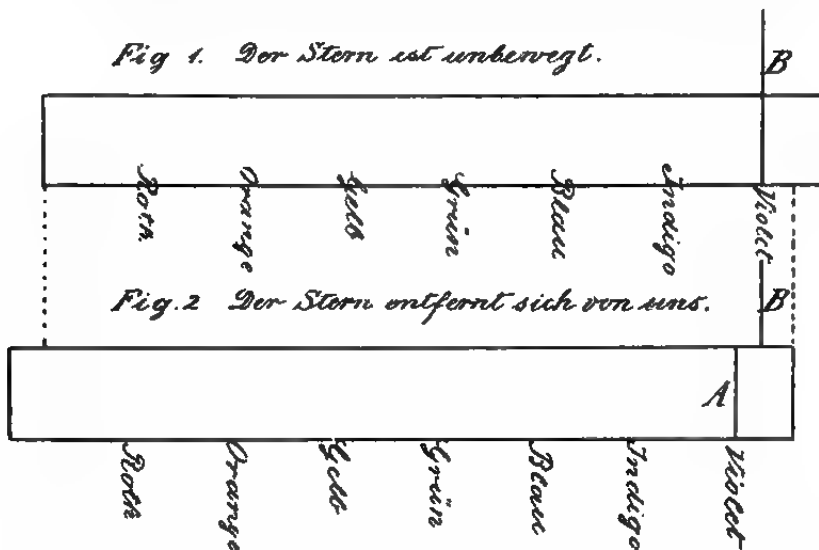 Fig 1. Der Stern ist unbewegt.
B
Roth.
Orange
Gelb
Grün
Blau
Indigo
Violet
Fig. 2 Der Stern entfernt sich von uns.
B
A
Roth
Orange
Gelb
Grün
Blau
Indigo
Violet